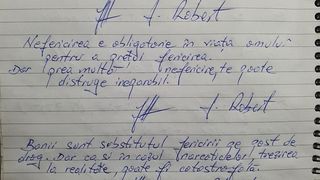 J. Robert
Nefericirea e obligatorie în viața omului
pentru a prețui fericirea.
Dar prea multă nefericire, te poate
distruge ireparabil.
J. Robert
Banii sunt substitutul fericirii pe post de
drog. Dar ca și în cazul narcoticelor, trezirea
la realitate, poate fi catastrofală.